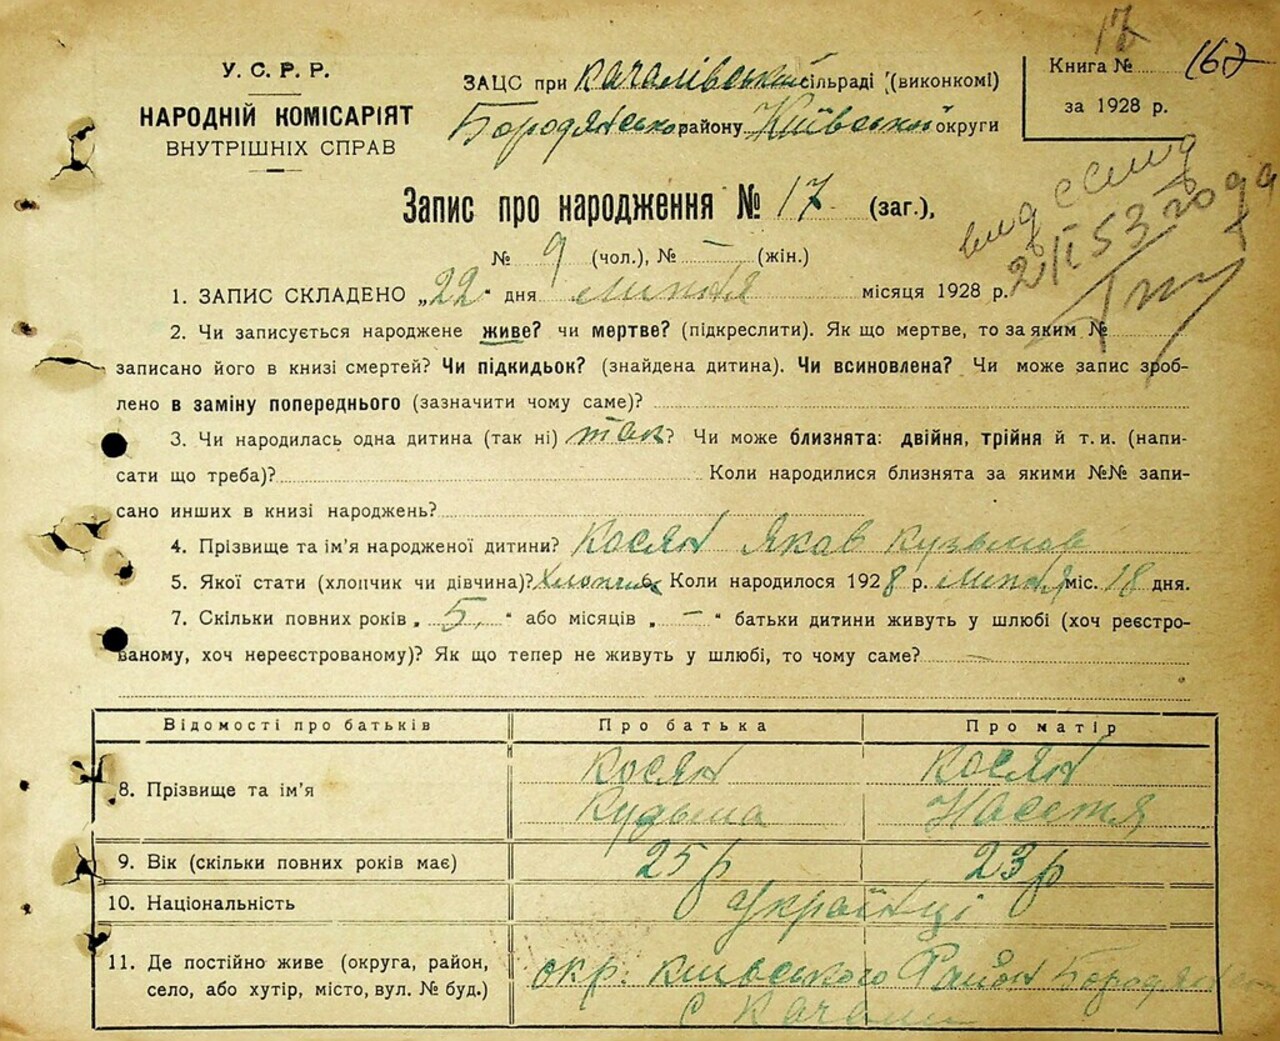 17
167
У. С. Р. Р.
НАРОДНІЙ КОМІСАРІЯТ
ВНУТРІШНІХ СПРАВ
ЗАЦС при Качалівській сільраді (виконкомі)
Бородянсько району Київської округи
Книга №
за 1928 р.
Запис про народження № 17 (заг.),
№ 9 (чол.), № – (жін.)
53 года
1. ЗАПИС СКЛАДЕНО „22“ дня липня місяця 1928 р.
2. Чи записується народжене живе? чи мертве? (підкреслити). Як що мертве, то за яким №
записано його в книзі смертей? Чи підкидьок? (знайдена дитина). Чи всиновлена? Чи може запис зроб-
лено в заміну попереднього (зазначити чому саме)?
3. Чи народилась одна дитина (так ні) так? Чи може близнята: двійня, трійня й т. и. (напи-
сати що треба)? Коли народилися близнята за якими №№ запи-
сано инших в книзі народжень?
4. Прізвище та ім’я народженої дитини? Косян Яков Кузьмов
5. Якої стати (хлопчик чи дівчина)? Хлопчик Коли народилося 1928 р. липня міс. 18 дня.
7. Скільки повних років „5“ або місяців „–“ батьки дитини живуть у шлюбі (хоч реєстро-
ваному, хоч нереєстрованому)? Як що тепер не живуть у шлюбі, то чому саме?
Відомості про батьків Про батька Про матір
8. Прізвище та ім’я Косян Косян
Кудьма Настя
9. Вік (скільки повних років має) 25 р 23 р
10. Національність Українці
11. Де постійно живе (округа, район,
село, або хутір, місто, вул. № буд.)
окр. київського Район Бородян
с Качали